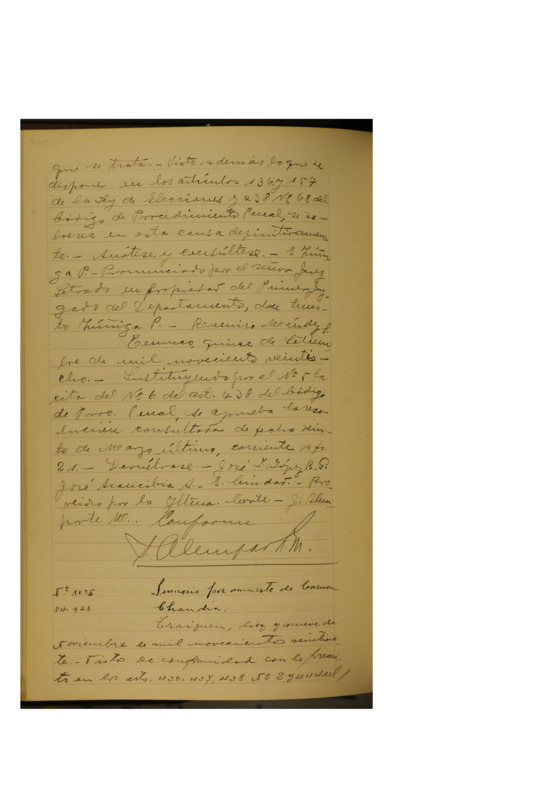 que se trata.- Visto, además lo que se
dispone en los artículos 136 y 157
de la Ley de Elecciones y 438 Nº 6º del
Código de Procedimiento Penal, se so-
bresee en esta causa definitivamen-
te.- Anótese y consúltese.- E. Zúñi-
ga P.- Pronunciado por el señor Juez
Letrado en propiedad del Primer Juz-
gado del Departamento, don Ernes-
to Zúñiga P.- Ramiro Méndez
Temuco, quince de Setiem
bre de mil novecientos veintio-
cho.- Sustituyendo por el Nº la
cita del Nº 6 de art. 438 del Código
de Proc. Penal, se aprueba la reso-
lución consultada de fecha
de Marzo último, corriente a fs.
21.- Devuélvase.- José López
José Arancibia A.- Pro-
veído por la Iltma. Corte.- J. Alem-
parte M.. Conforme
J Alemparte M.
Nº 1036
Sumario por muerte de Carmen
Traiguén, diez y nueve de
Noviembre de mil novecientos veintisie
te.- Vistos: de conformidad con lo prescri
to en los arts. 436, 437, 438 Nº 2 y